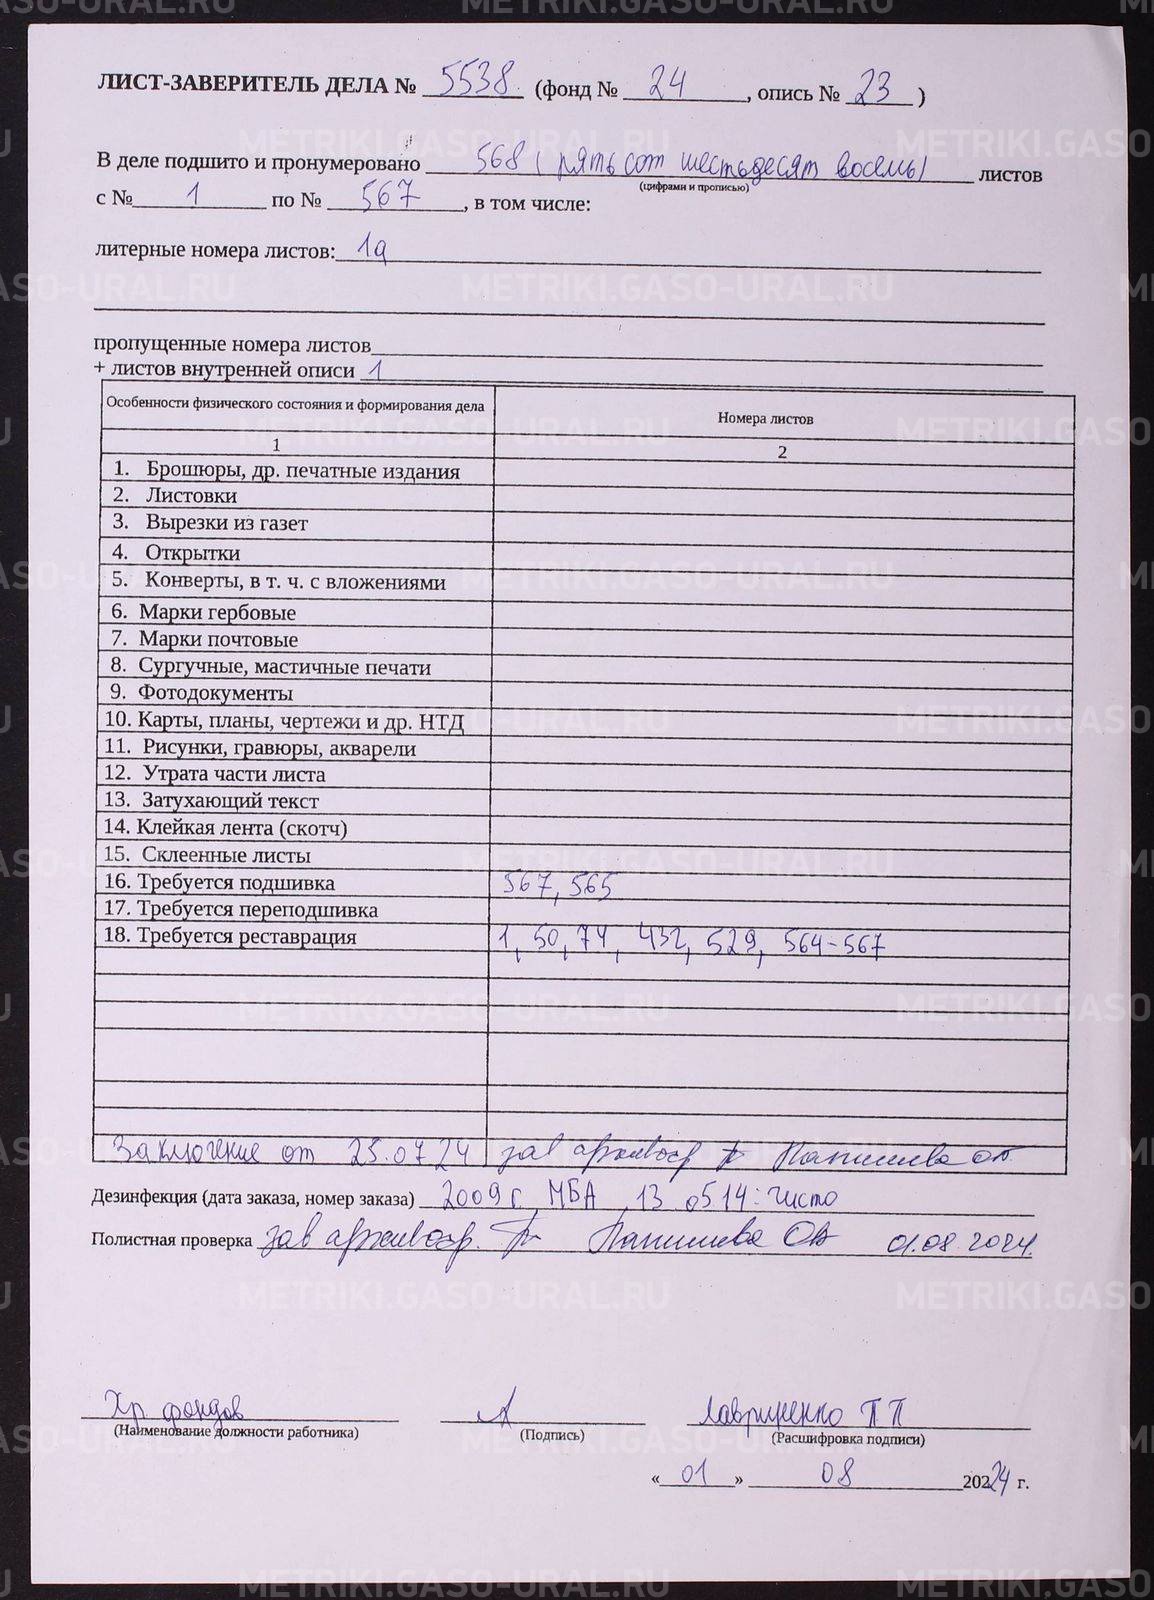 ЛИСТ-ЗАВЕРИТЕЛЬ ДЕЛА № 5538 (фонд № 24, опись № 23)
В деле подшито и пронумеровано 568 (пятьсот шестьдесят восемь) листов
(цифрами и прописью)
с № 1 по № 567, в том числе:
литерные номера листов: 1а
пропущенные номера листов
+ листов внутренней описи 1
Особенности физического состояния и формирования дела Номера листов
1 2
1. Брошюры, др. печатные издания
2. Листовки
3. Вырезки из газет
4. Открытки
5. Конверты, в т. ч. с вложениями
6. Марки гербовые
7. Марки почтовые
8. Сургучные, мастичные печати
9. Фотодокументы
10. Карты, планы, чертежи и др. НТД
11. Рисунки, гравюры, акварели
12. Утрата части листа
13. Затухающий текст
14. Клейкая лента (скотч)
15. Склеенные листы
16. Требуется подшивка 567, 565
17. Требуется переподшивка
18. Требуется реставрация 1, 50, 74, 432, 529, 564-567
Заключение от 25.07.24 зав архивохр
Дезинфекция (дата заказа, номер заказа) 2009 г, МБА, 13 0514: чисто
Полистная проверка зав архивохр. 01.08.2024.
Хр фондов Лавриненко П П
(Наименование должности работника) (Подпись) (Расшифровка подписи)
« 01 » 08 2024 г.
METRIKI.GASO-URAL.RU